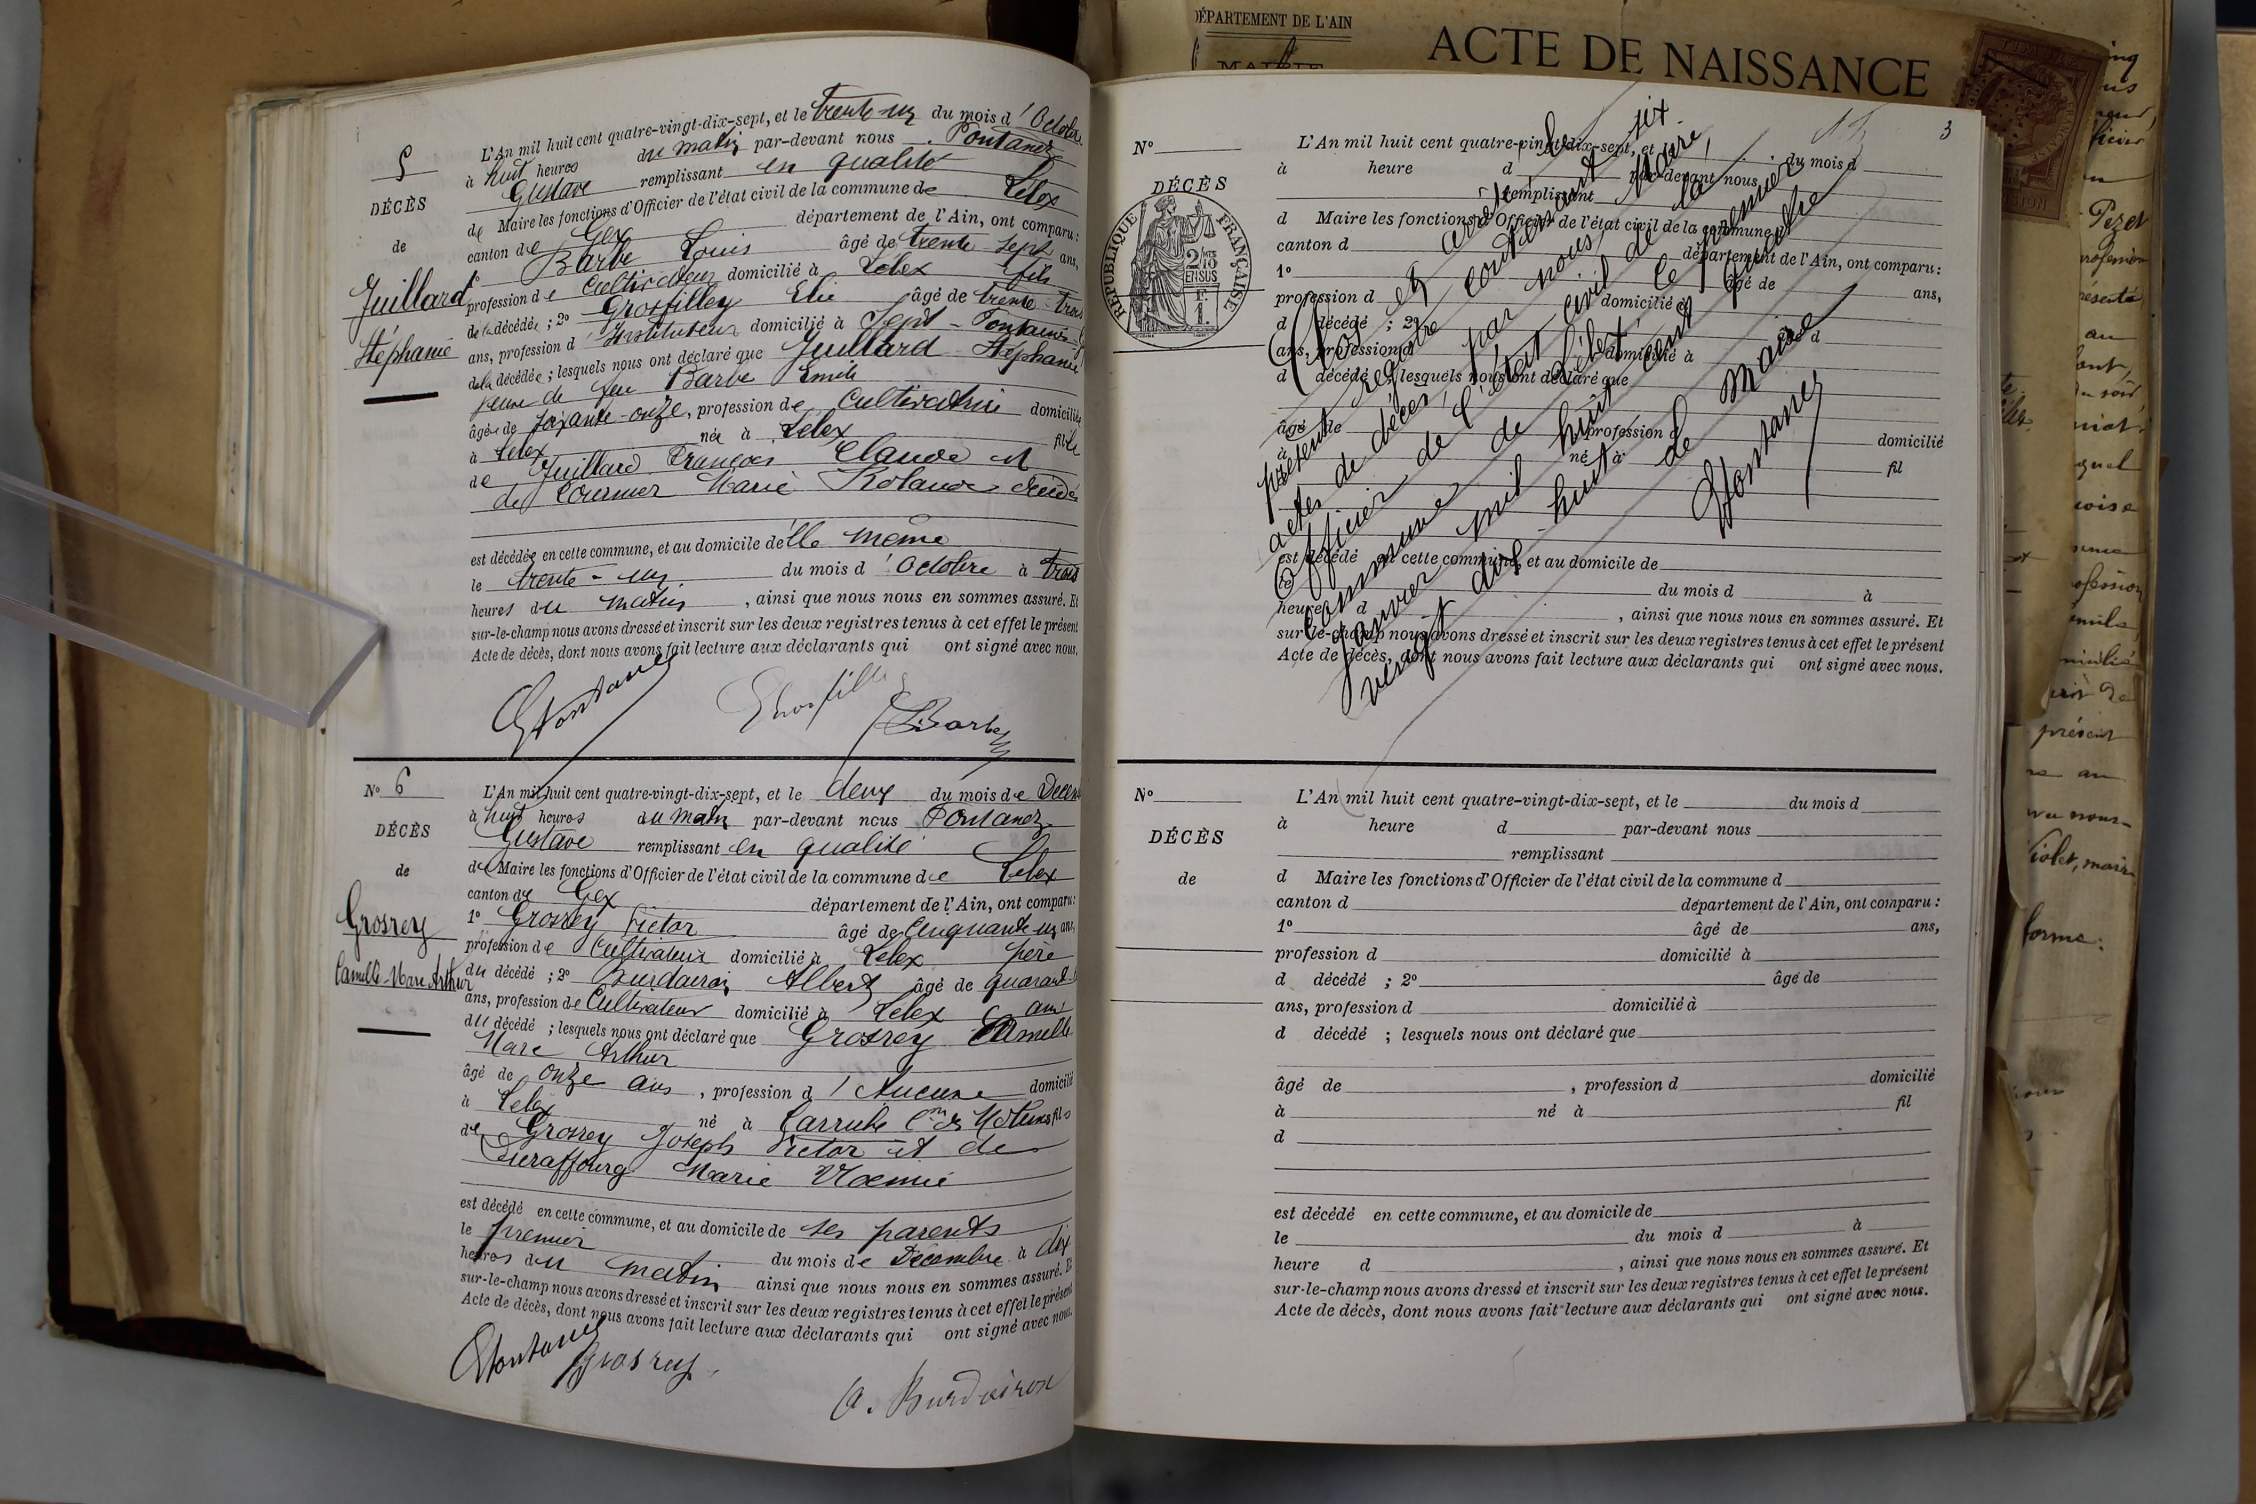 5
DÉCÈS
de
Juillard
Stéphanie
L'An mil huit cent quatre-vingt-dix-sept, et le trente-un du mois d'Octobre
à huit heures du matin par-devant nous Fontanez
Gustave remplissant en qualité
de Maire les fonctions d'Officier de l'état civil de la commune de Lélex
canton de Gex département de l'Ain, ont comparu :
1º Barbe Louis âgé de trente-sept ans,
profession de Cultivateur domicilié à Lélex fils
de la décédée ; 2º Grosfilley Elie âgé de trente-trois
ans, profession d'Instituteur domicilié à Sept-Fontaines
de la décédée ; lesquels nous ont déclaré que Juillard Stéphanie
veuve de feu Barbe Emile
âgée de soixante-onze, profession de Cultivatrice domiciliée
à Lélex née à Lélex fille
de Juillard François Claude et
de Cournier Marie Rolande décédés
est décédée en cette commune, et au domicile d'elle même
le trente-un du mois d'Octobre à trois
heures du matin, ainsi que nous nous en sommes assuré. Et
sur-le-champ nous avons dressé et inscrit sur les deux registres tenus à cet effet le présent
Acte de décès, dont nous avons fait lecture aux déclarants qui ont signé avec nous.
GFontanez
Barbe
Nº 6
DÉCÈS
de
Grosrey
Camille-Marc Arthur
L'An mil huit cent quatre-vingt-dix-sept, et le deux du mois de Décem
à huit heures du matin par-devant nous Fontanez
Gustave remplissant en qualité
de Maire les fonctions d'Officier de l'état civil de la commune de Lélex
canton de Gex département de l'Ain, ont comparu :
1º Grosrey Victor âgé de cinquante-un ans,
profession de Cultivateur domicilié à Lélex père
du décédé ; 2º Burdairon Albert âgé de quarante
ans, profession de Cultivateur domicilié à Lélex ami
du décédé ; lesquels nous ont déclaré que Grosrey Camille
Marc Arthur
âgé de onze ans, profession d'Aucune domicilié
à Lélex né à Larrube fils
de Grosrey Joseph Victor et de
Duraffourg Marie Noémie
est décédé en cette commune, et au domicile de ses parents
le premier du mois de Décembre à dix
heures du matin ainsi que nous nous en sommes assuré. Et
sur-le-champ nous avons dressé et inscrit sur les deux registres tenus à cet effet le présent
Acte de décès, dont nous avons fait lecture aux déclarants qui ont signé avec nous.
GFontanez
Grosrey
A. Burdairon
DÉPARTEMENT DE L'AIN
MAIRIE
ACTE DE NAISSANCE
3
Nº
DÉCÈS
RÉPUBLIQUE FRANÇAISE
L'An mil huit cent quatre-vingt-dix-sept, et le du mois d
à heure d par-devant nous
remplissant
d Maire les fonctions d'Officier de l'état civil de la commune d
canton d département de l'Ain, ont comparu :
1º âgé de ans,
profession d domicilié à
d décédé ; 2º âgé d
ans, profession d domicilié à
d décédé ; lesquels nous ont déclaré que
âgé de profession d domicilié
à né à fil
est décédé en cette commune, et au domicile de
le du mois d à
heure d , ainsi que nous nous en sommes assuré. Et
sur-le-champ nous avons dressé et inscrit sur les deux registres tenus à cet effet le présent
Acte de décès, dont nous avons fait lecture aux déclarants qui ont signé avec nous.
Clos et arrêté le
présent registre contenant six
actes de décès, par nous, Maire,
Officier de l'état civil de la
Commune de Lélex, le premier
Janvier mil huit cent quatre
vingt dix huit
le Maire
GFontanez
Nº
DÉCÈS
de
L'An mil huit cent quatre-vingt-dix-sept, et le du mois d
à heure d par-devant nous
remplissant
d Maire les fonctions d'Officier de l'état civil de la commune d
canton d département de l'Ain, ont comparu :
1º âgé de ans,
profession d domicilié à
d décédé ; 2º âgé de
ans, profession d domicilié à
d décédé ; lesquels nous ont déclaré que
âgé de , profession d domicilié
à né à fil
d
est décédé en cette commune, et au domicile de
le du mois d à
heure d , ainsi que nous nous en sommes assuré. Et
sur-le-champ nous avons dressé et inscrit sur les deux registres tenus à cet effet le présent
Acte de décès, dont nous avons fait lecture aux déclarants qui ont signé avec nous.